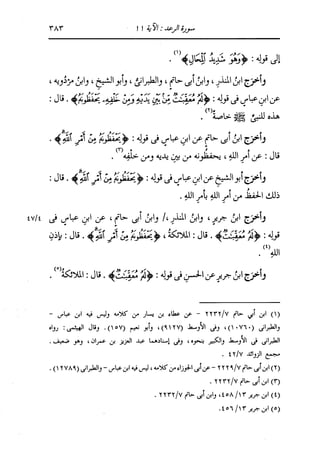 سورة الرعد : الآية ١١
٣٨٣
إلى قوله : ﴿وَهُوَ شَدِيدُ الْمِحَالِ﴾(١).
وأخرج ابنُ المنذرِ ، وابنُ أبى حاتمٍ ، والطبرانىُّ ، وأبو الشيخِ ، وابنُ مَرْدُويه ،
عن ابنِ عباسٍ فى قوله : ﴿لَهُ مُعَقِّبَاتٌ مِّنْ بَيْنِ يَدَيْهِ وَمِنْ خَلْفِهِ يَحْفَظُونَهُ﴾ . قال :
هذه للنبىِّ ﷺ خاصةً(٢).
وأخرج ابنُ أبى حاتمٍ عن ابنِ عباسٍ فى قوله : ﴿يَحْفَظُونَهُ مِنْ أَمْرِ اللَّهِ﴾ .
قال : عن أمرِ اللهِ ، يحفظونه من بينِ يديه ومن خلفِه(٣).
وأخرج أبو الشيخِ عن ابنِ عباسٍ فى قوله : ﴿يَحْفَظُونَهُ مِنْ أَمْرِ اللَّهِ﴾ . قال :
ذلك الحفظُ من أمرِ اللهِ بأمرِ اللهِ .
وأخرج ابنُ جريرٍ ، وابنُ المنذرِ ،/ وابنُ أبى حاتمٍ ، عن ابنِ عباسٍ فى ٤٧/٤
قوله : ﴿لَهُ مُعَقِّبَاتٌ﴾ . قال : الملائكةُ ، ﴿يَحْفَظُونَهُ مِنْ أَمْرِ اللَّهِ﴾ . قال : بإذنِ
اللهِ(٤).
وأخرج ابنُ جريرٍ عن الحسنِ فى قوله : ﴿لَهُ مُعَقِّبَاتٌ﴾ . قال : الملائكةُ(٥).
(١) ابن أبي حاتم ٢٢٣٢/٧ - عن عطاء بن يسار من كلامه وليس فيه ابن عباس -
والطبرانى (١٠٧٦٠) ، وفى الأوسط (٩١٢٧) ، وأبو نعيم (١٥٧) . وقال الهيثمى : رواه
الطبرانى فى الأوسط والكبير بنحوه ، وفى إسنادهما عبد العزيز بن عمران ، وهو ضعيف .
مجمع الزوائد ٤٢/٧ .
(٢) ابن أبى حاتم ٢٢٢٩/٧ - عن أبى الجوزاء من كلامه ، ليس فيه ابن عباس - والطبرانى (١٢٧٨٩) .
(٣) ابن أبى حاتم ٢٢٣٢/٧ .
(٤) ابن جرير ٤٥٨/١٣ ، وابن أبى حاتم ٢٢٣٢/٧ .
(٥) ابن جرير ٤٥٦/١٣ .